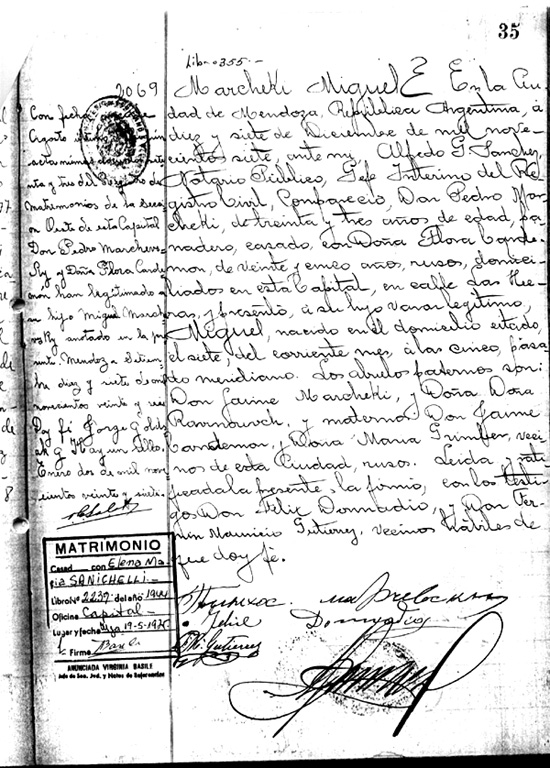 35
Libro 355.-
2069
Marcheki Miguel En la Ciu
dad de Mendoza, República Argentina, á
diez y siete de Diciembre de mil nove-
cientos siete, ante my, Alfredo G Sanchez,
Notario Público, Gefe Interino del Re
gistro Civil, Compareció, Don Pedro Mar
cheki, de treinta y tres años de edad, pa
nadero, casado, con Doña Flora Cande
mon, de veinte y cinco años, rusos, domici
liados en esta Capital, en calle Las He
ras, y presentó, á su hijo varon legítimo,
Miguel, nacido en el domicilio citado,
el siete, del corriente mes, á las cinco, pasa
do meridiano. Los abuelos paternos son:
Don Jaime Marcheki, y Doña Dora
y maternos Don Jaime
Candemon, y Doña Maria veci
nos de esta Ciudad, rusos. Leida y rati
ficada la presente, la firmó, con los testi
gos Don Felix Donnadio, y Don Fer
min Mauricio Gutierrez, vecinos hábiles de
que doy fé.
Con fecha
Agosto
acta número
ta y tres del
matrimonios de la Sec
on Oeste de esta Capital
Don Pedro Marchevs
ky y Doña Flora Cande
mon han legitimado a
su hijo Miguel March
vsky anotado en la pre
sente. Mendoza Setiem
bre diez y siete de mil
novecientos veinte y seis
Doy fé Jorge
Hay un sello.
Enero dos de mil nove
cientos veinte y siete.
MATRIMONIO
Casad con Elena Ma
ria SANICHELLI.-
Libro Nº 2239 del año 1944
Oficina Capital-
Lugar y fecha Mza 19-5-197
Firma Basile
ANUNCIADA VIRGINIA BASILE
Jefe de Sec. Jud. y Notas de Referencias
Felix Donnadio
M. Gutierrez